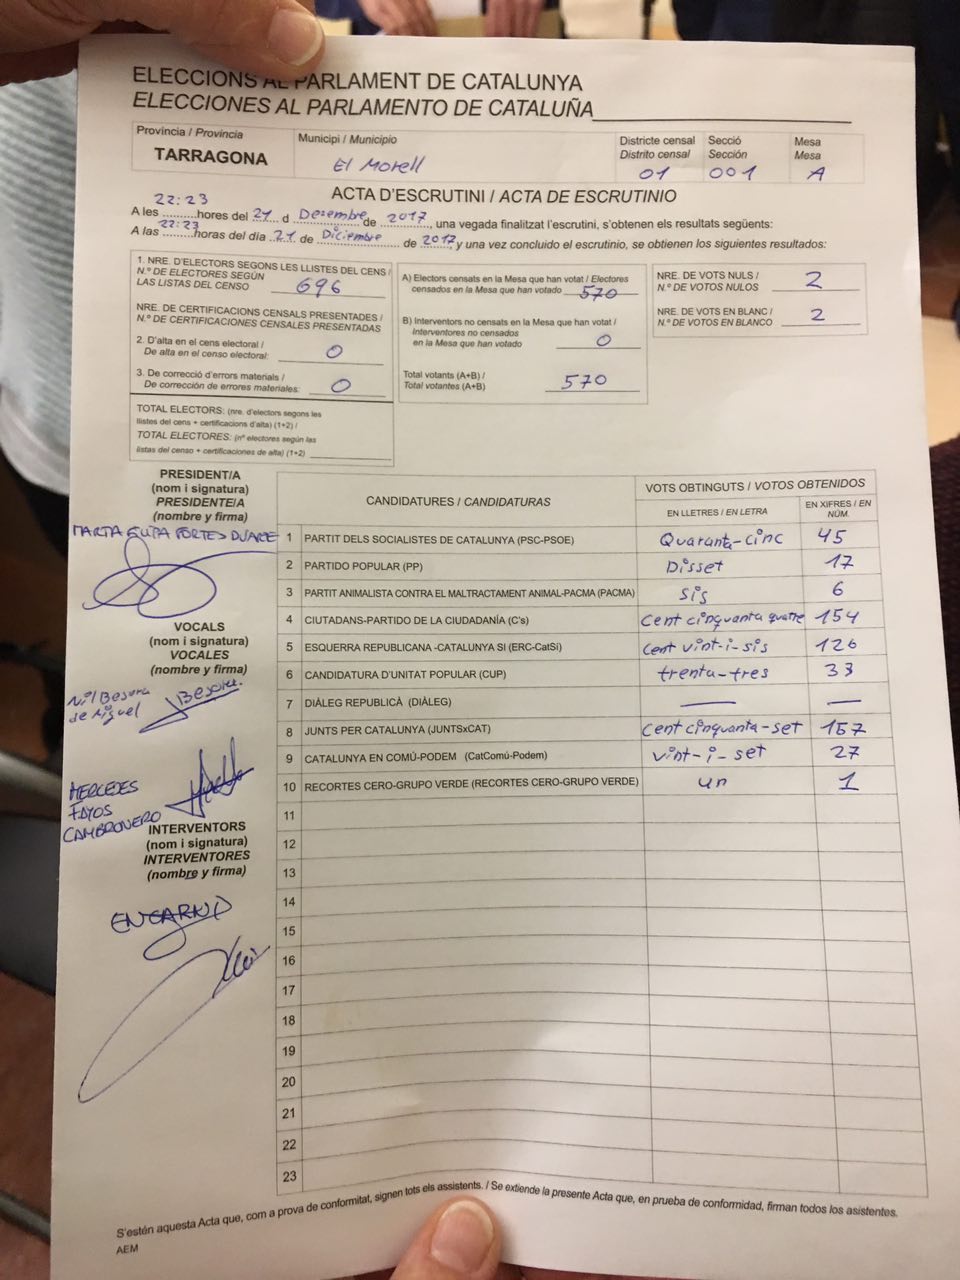 ELECCIONS AL PARLAMENT DE CATALUNYA
ELECCIONES AL PARLAMENTO DE CATALUÑA
Provincia / Provincia
TARRAGONA
Municipi / Municipio
El Morell
Districte censal
Distrito censal
01
Secció
Sección
001
Mesa
Mesa
A
ACTA D'ESCRUTINI / ACTA DE ESCRUTINIO
A les 22:23 hores del 21 d Desembre de 2017, una vegada finalitzat l'escrutini, s'obtenen els resultats següents:
A las 22:23 horas del día 21 de Diciembre de 2017 y una vez concluido el escrutinio, se obtienen los siguientes resultados:
1. NRE. D'ELECTORS SEGONS LES LLISTES DEL CENS /
N.º DE ELECTORES SEGÚN
LAS LISTAS DEL CENSO 696
NRE. DE CERTIFICACIONS CENSALS PRESENTADES /
N.º DE CERTIFICACIONES CENSALES PRESENTADAS
2. D'alta en el cens electoral /
De alta en el censo electoral: 0
3. De correcció d'errors materials /
De corrección de errores materiales: 0
TOTAL ELECTORS: (nre. d'electors segons les
llistes del cens + certificacions d'alta) (1+2) /
TOTAL ELECTORES: (nº electores según las
listas del censo + certificaciones de alta) (1+2)
A) Electors censats en la Mesa que han votat / Electores
censados en la Mesa que han votado 570
B) Interventors no censats en la Mesa que han votat /
Interventores no censados
en la Mesa que han votado 0
Total votants (A+B) /
Total votantes (A+B) 570
NRE. DE VOTS NULS /
N.º DE VOTOS NULOS 2
NRE. DE VOTS EN BLANC /
N.º DE VOTOS EN BLANCO 2
PRESIDENT/A
(nom i signatura)
PRESIDENTE/A
(nombre y firma)
VOCALS
(nom i signatura)
VOCALES
(nombre y firma)
Nil Besora
de Miguel
Besora
MERCEDES
FAYOS
CAMBRONERO
INTERVENTORS
(nom i signatura)
INTERVENTORES
(nombre y firma)
CANDIDATURES / CANDIDATURAS
VOTS OBTINGUTS / VOTOS OBTENIDOS
EN LLETRES / EN LETRA
EN XIFRES / EN NÚM.
1 PARTIT DELS SOCIALISTES DE CATALUNYA (PSC-PSOE) Quaranta-cinc 45
2 PARTIDO POPULAR (PP) Disset 17
3 PARTIT ANIMALISTA CONTRA EL MALTRACTAMENT ANIMAL-PACMA (PACMA) sis 6
4 CIUTADANS-PARTIDO DE LA CIUDADANÍA (C's) Cent cinquanta quatre 154
5 ESQUERRA REPUBLICANA -CATALUNYA SI (ERC-CatSí) Cent vint-i-sis 126
6 CANDIDATURA D'UNITAT POPULAR (CUP) trenta-tres 33
7 DIÀLEG REPUBLICÀ (DIÀLEG) — —
8 JUNTS PER CATALUNYA (JUNTSxCAT) Cent cinquanta-set 157
9 CATALUNYA EN COMÚ-PODEM (CatComú-Podem) vint-i-set 27
10 RECORTES CERO-GRUPO VERDE (RECORTES CERO-GRUPO VERDE) un 1
11
12
13
14
15
16
17
18
19
20
21
22
23
S'estén aquesta Acta que, com a prova de conformitat, signen tots els assistents. / Se extiende la presente Acta que, en prueba de conformidad, firman todos los asistentes.
AEM